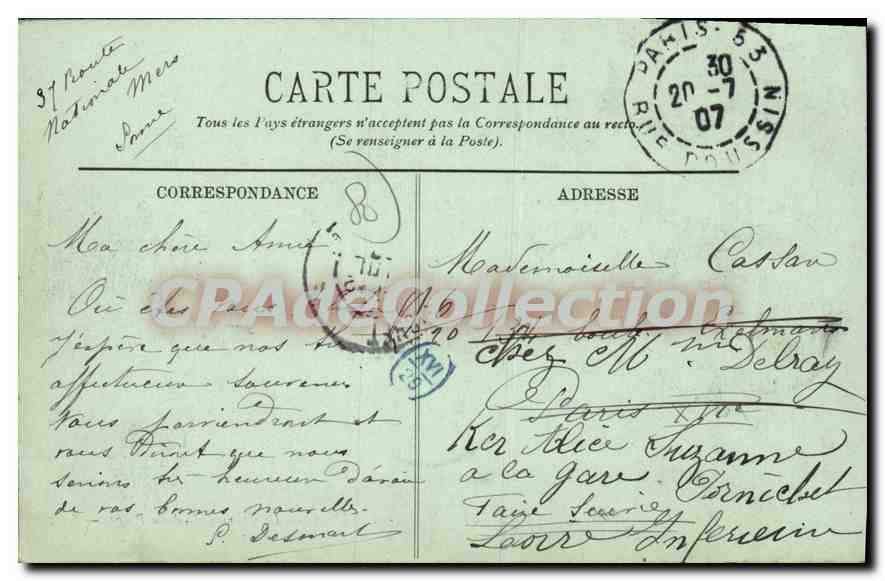 37 Route
Nationale Mers
Somme
CARTE POSTALE
Tous les Pays étrangers n'acceptent pas la Correspondance au recto.
(Se renseigner à la Poste).
PARIS · 53
30
20 -7
07
RUE POUSSIN
CORRESPONDANCE
ADRESSE
Ma chère Amie
Où êtes vous
J'espère que nos
affectueux souvenirs
vous parviendront et
vous diront que nous
serions très heureux d'avoir
de vos bonnes nouvelles.
Mademoiselle Cassan
chez Mme Delray
Paris XVIe
Ker Alice Suzanne
a la gare Pornichet
Faire Suivre
Loire Inferieure
XVI
20
CPAdeCollection